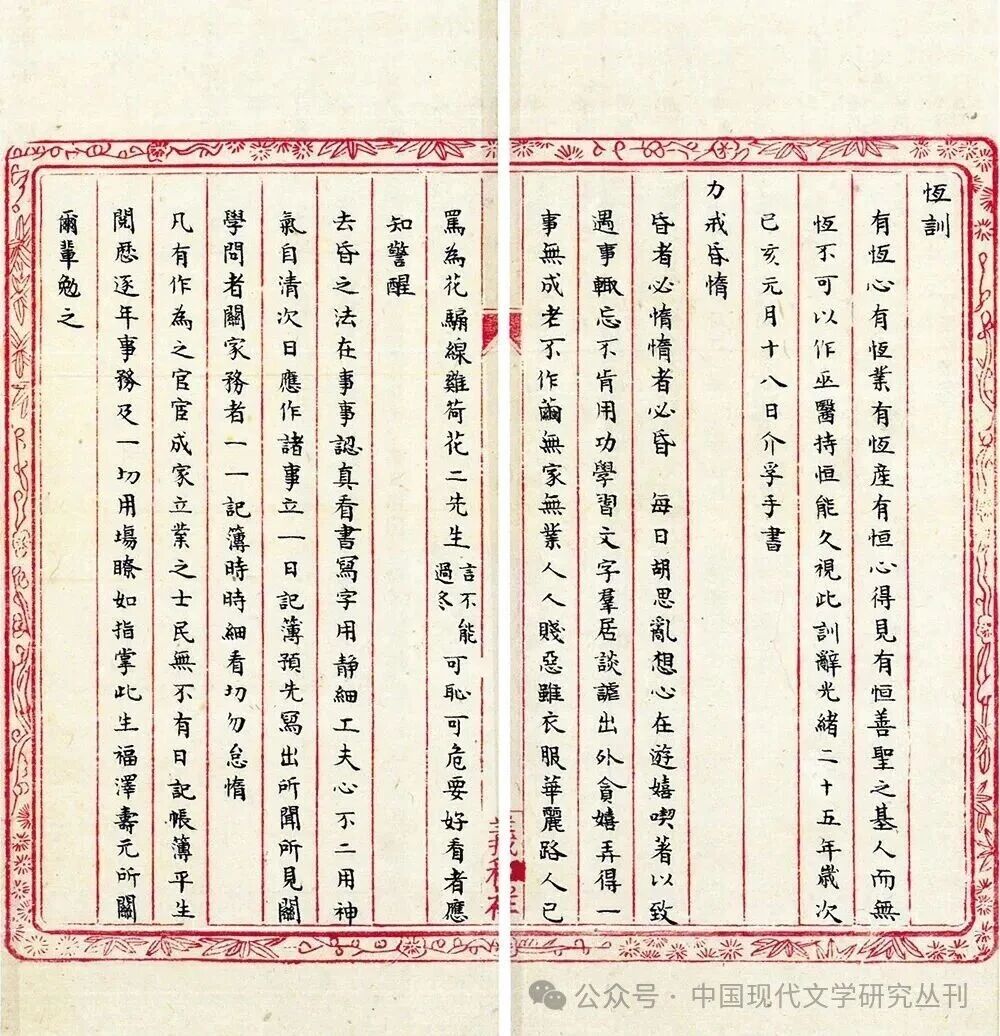 恆訓
有恆心有恆業有恆產有恒心得見有恒善聖之基人而無
恆不可以作巫醫持恒能久視此訓辭光緒二十五年歲次
己亥元月十八日介孚手書
力戒昏惰
昏者必惰惰者必昏 每日胡思亂想心在遊嬉喫著以致
遇事輒忘不肯用功學習文字羣居談謔出外貪嬉弄得一
事無成老不作繭無家無業人人賤惡雖衣服華麗路人已
罵為花騸線雞荷花二先生言不能過冬可恥可危要好看者應
知警醒
去昏之法在事事認真看書寫字用靜細工夫心不二用神
氣自清次日應作諸事立一日記簿預先寫出所聞所見關
學問者關家務者一一記簿時時細看切勿怠惰
凡有作為之官宦成家立業之士民無不有日記帳簿平生
閱歷逐年事務及一切用場瞭如指掌此生福澤壽元所關
爾輩勉之
公众号·中国现代文学研究丛刊